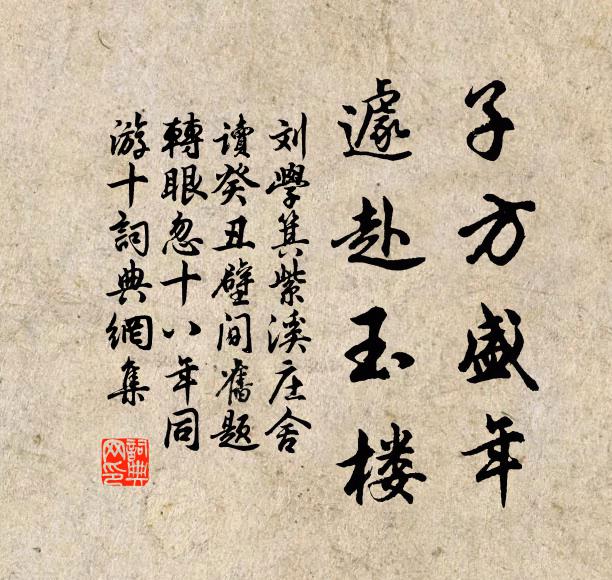 子方盛年
遽赴玉楼
刘學箕紫溪庄舍
讀癸丑壁间舊题
轉眼忽十八年同
游十詞典網集
詞典网印